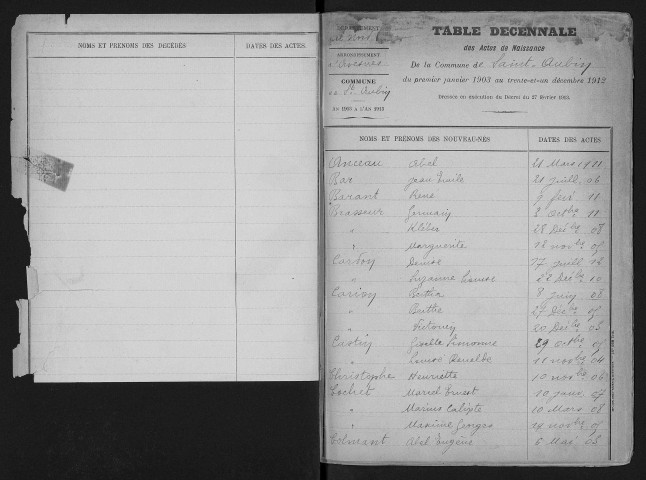 NOMS ET PRÉNOMS DES DÉCÉDÉS DATES DES ACTES
DÉPARTEMENT
du Nord
ARRONDISSEMENT
d'Avesnes
COMMUNE
de St Aubin
AN 1903 A L'AN 1912
TABLE DÉCENNALE
des Actes de Naissance
De la Commune de Saint-Aubin
du premier janvier 1903 au trente-et-un décembre 1912
Dressée en exécution du Décret du 27 février
NOMS ET PRÉNOMS DES NOUVEAU-NÉS DATES DES ACTES
Anceau Abel 21 Mars 1911
Bar Jean Emile 21 juill 06
Barant René 11
Brasseur Germain 8 Octbre 11
" Kléber 28 Décbre 08
" Marguerite 12 novbre 05
Denise 17 juill 12
" Suzanne 22 Décbre 10
8 juin 08
" Berthe 27 Décbre 05
" 20 Décbre 03
Giselle Simonne 29 octbre 05
" Louise 11 novbre 04
Christophe Henriette 10 novbre 06
Cochet Marcel Ernest 10 janv 07
" Marius Calixte 10 Mars 08
" Maxime Georges 14 novbre 05
Colmant Abel Eugène 6 Mai 03